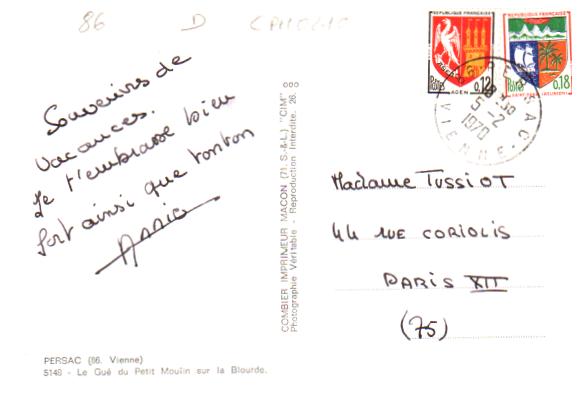 86 D
REPUBLIQUE FRANÇAISE
Postes 0,12
AGEN
REPUBLIQUE FRANÇAISE
Postes 0,18
PERSAC
18-30
5-2
1970
VIENNE
Souvenirs de
vacances.
Je t'embrasse bien
fort ainsi que tonton
COMBIER IMPRIMEUR MACON (71. S.-&-L.) "CIM"
Photographie Véritable - Reproduction Interdite. 26.
Madame Tussiot
44 rue CORIOLIS
PARIS XII
(75)
PERSAC (86. Vienne)
5148 - Le Gué du Petit Moulin sur la Blourde.